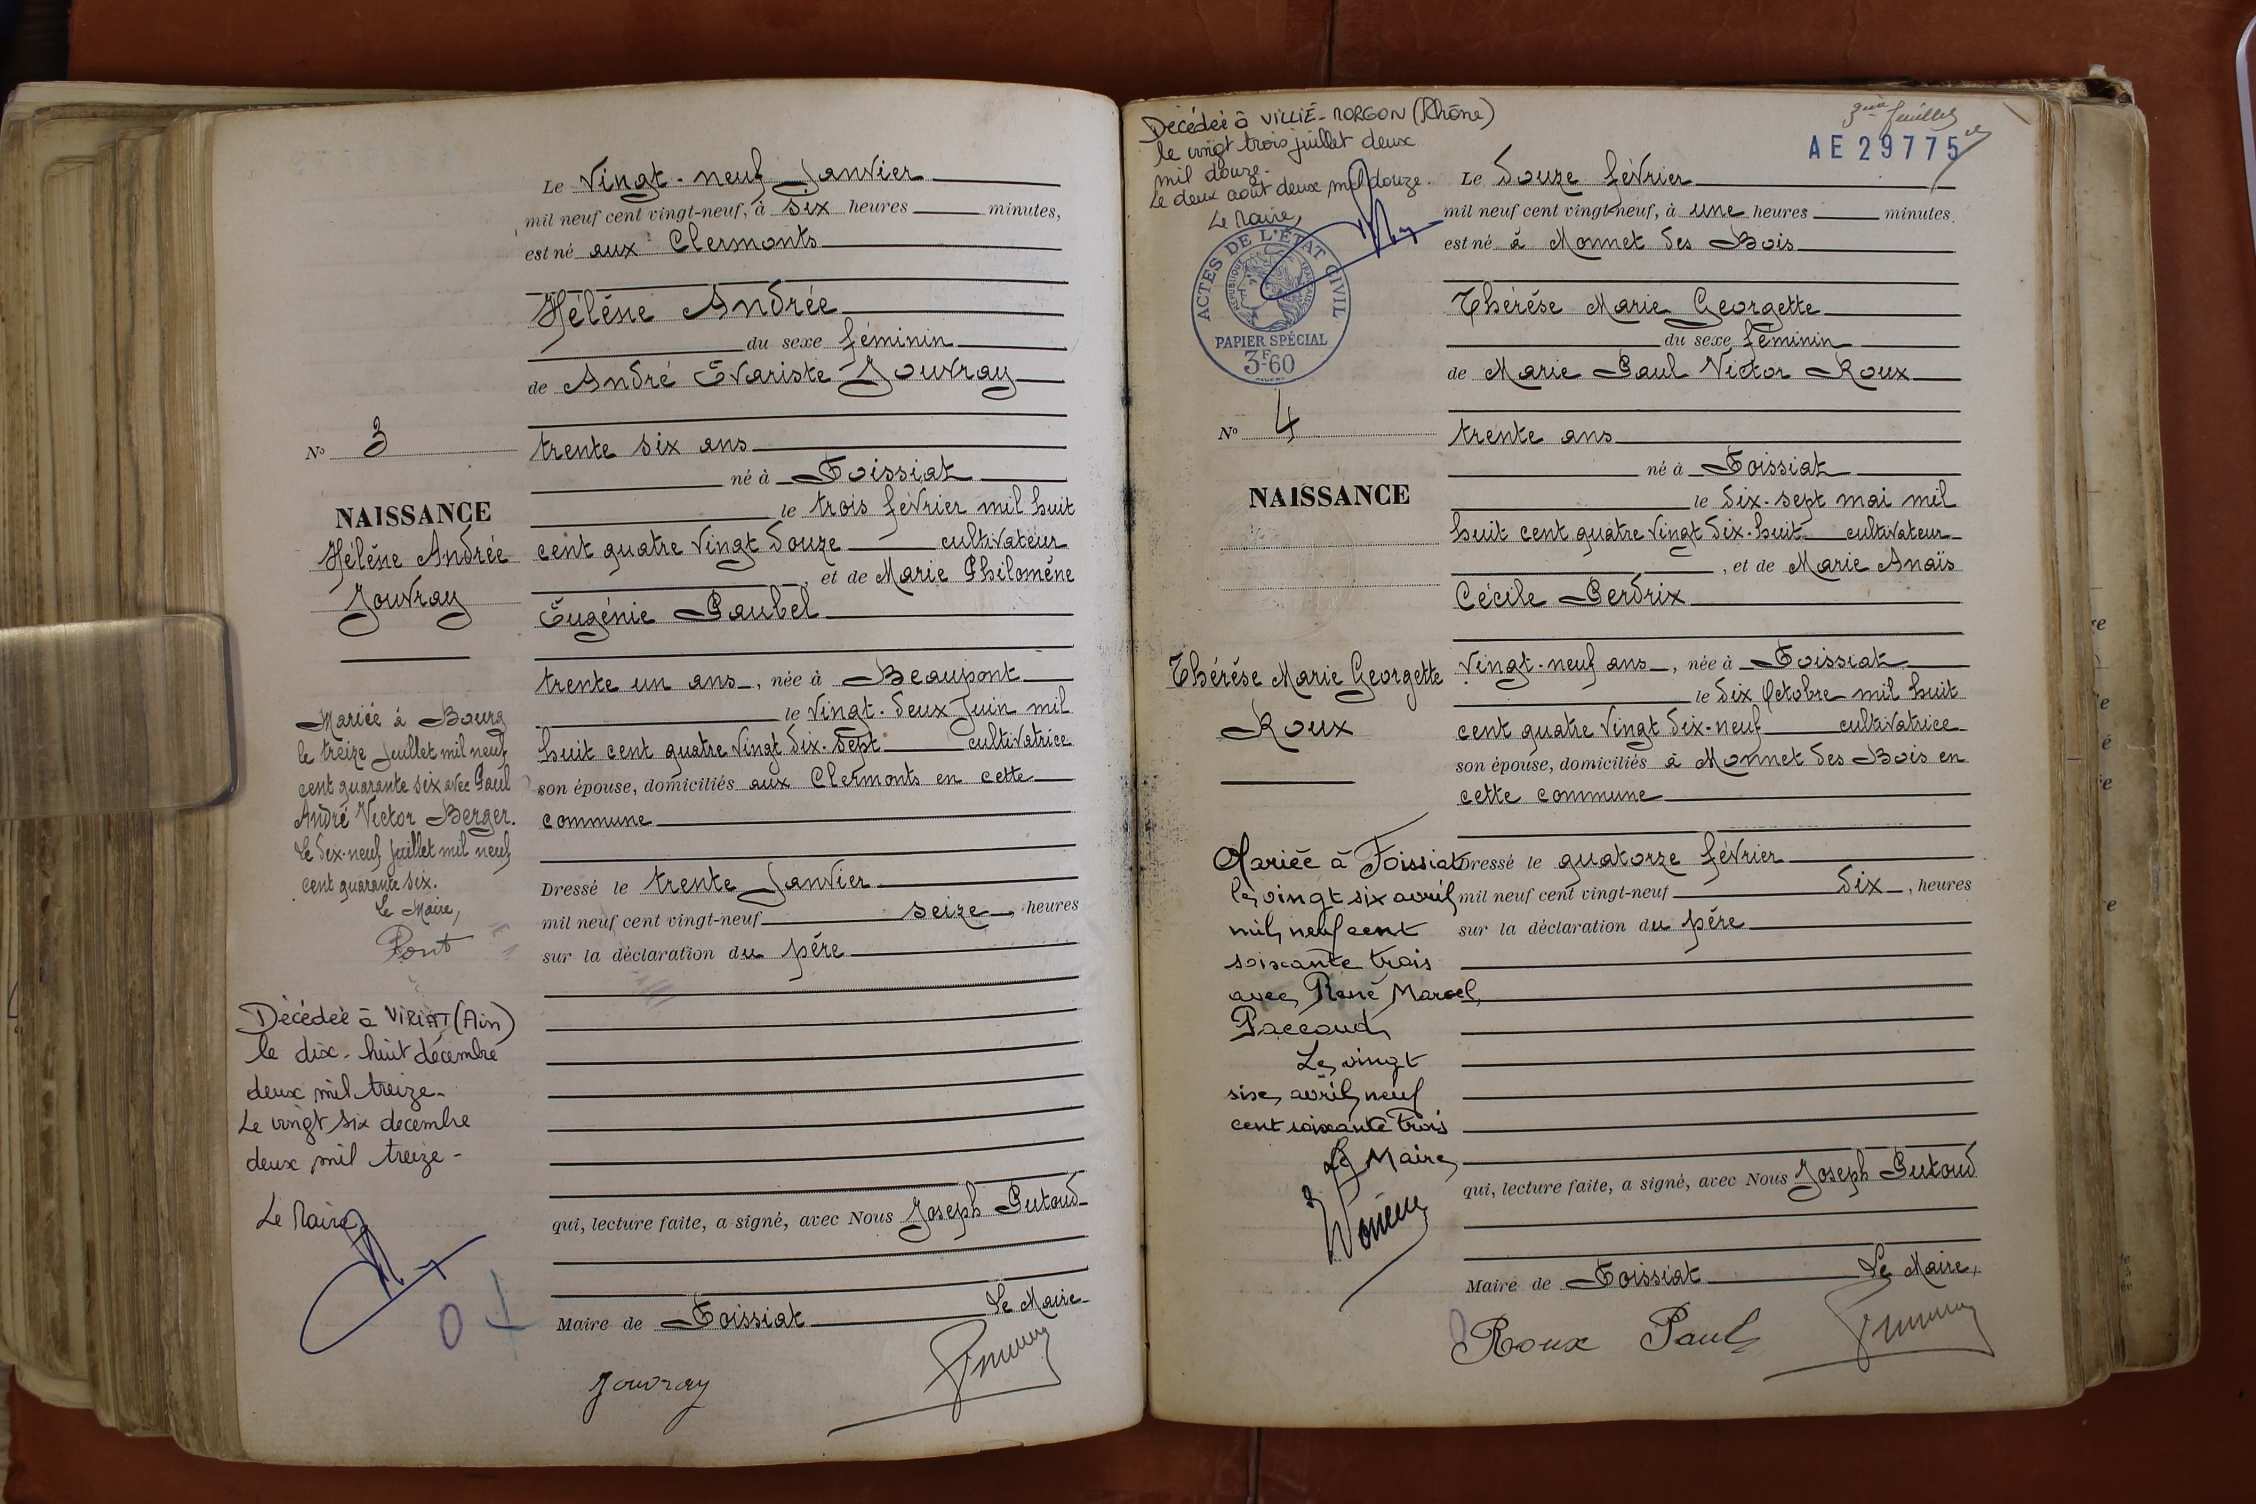 Le Vingt-neuf Janvier
mil neuf cent vingt-neuf, à six heures minutes,
est né aux Clermonts
Hélène Andrée
du sexe féminin
de André Evariste Jouvray
trente six ans
né à Foissiat
le trois février mil huit
cent quatre vingt douze cultivateur
, et de Marie Philomène
Eugénie Paubel
trente un ans, née à Beaupont
le vingt-deux Juin mil
huit cent quatre vingt dix-sept cultivatrice
son épouse, domiciliés aux Clermonts en cette
commune
Dressé le trente Janvier
mil neuf cent vingt-neuf seize, heures
sur la déclaration du père
qui, lecture faite, a signé, avec Nous Joseph Putoud
Maire de Foissiat Le Maire
Jouvray
No 3
NAISSANCE
Hélène Andrée
Jouvray
Mariée à Bourg
le treize Juillet mil neuf
cent quarante six avec Paul
André Victor Berger.
Le dix-neuf Juillet mil neuf
cent quarante six.
Le Maire,
Pont
Décédée à VIRIAT (Ain)
le dix-huit décembre
deux mil treize-
Le vingt six decembre
deux mil treize-
Le Maire
3ème feuillet
AE 29775
Décédée à VILLIÉ-MORGON (Rhône)
le vingt trois juillet deux
mil douze.
Le deux août deux mil douze.
Le Maire,
ACTES DE L'ÉTAT CIVIL
RÉPUBLIQUE FRANÇAISE
PAPIER SPÉCIAL
3F60
No 4
NAISSANCE
Thérèse Marie Georgette
Roux
Mariée à Foissiat
le vingt six avril
mil neuf cent
soixante trois
avec René Marcel
Paccoud
Le vingt
six avril neuf
cent soixante trois
Le Maire
Le Douze février
mil neuf cent vingt-neuf, à une heures minutes.
est né à Monnet des Bois
Thérèse Marie Georgette
du sexe féminin
de Marie Paul Victor Roux
trente ans
né à Foissiat
le dix-sept mai mil
huit cent quatre vingt dix-huit cultivateur
, et de Marie Anaïs
Cécile Perdrix
vingt-neuf ans, née à Foissiat
le dix Octobre mil huit
cent quatre vingt dix-neuf cultivatrice
son épouse, domiciliés à Monnet des Bois en
cette commune
Dressé le quatorze février
mil neuf cent vingt-neuf dix, heures
sur la déclaration du père
qui, lecture faite, a signé, avec Nous Joseph Putoud
Maire de Foissiat Le Maire,
Roux Paul